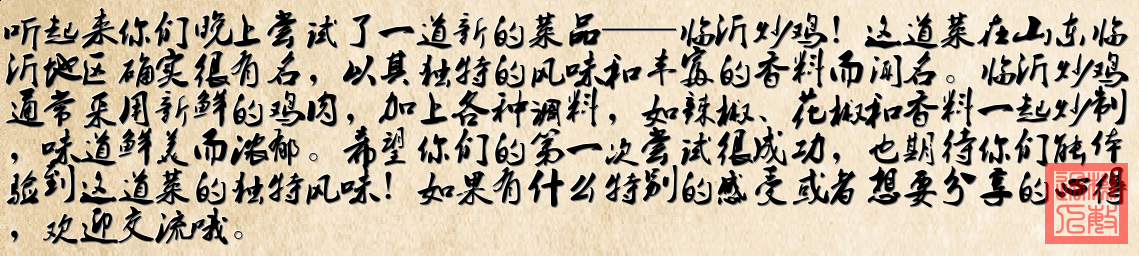 听起来你们晚上尝试了一道新的菜品——临沂炒鸡！这道菜在山东临
沂地区确实很有名，以其独特的风味和丰富的香料而闻名。临沂炒鸡
通常采用新鲜的鸡肉，加上各种调料，如辣椒、花椒和香料一起炒制
，味道鲜美而浓郁。希望你们的第一次尝试很成功，也期待你们能体
验到这道菜的独特风味！如果有什么特别的感受或者想要分享的心得
，欢迎交流哦。